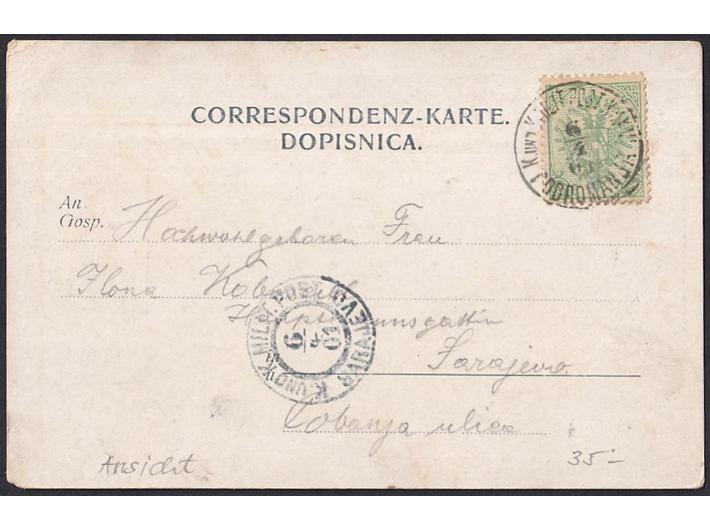 CORRESPONDENZ-KARTE.
DOPISNICA.
An
Gosp.
Hochwohlgeboren Frau
Ilona
Hauptmannsgattin
Sarajevo
Cobanja ulica
K. UND K. MILIT. POST SARAJEVO
6
4
01
K. UND K. MILIT. POST
PODROMANIJA
Ansicht
35.-